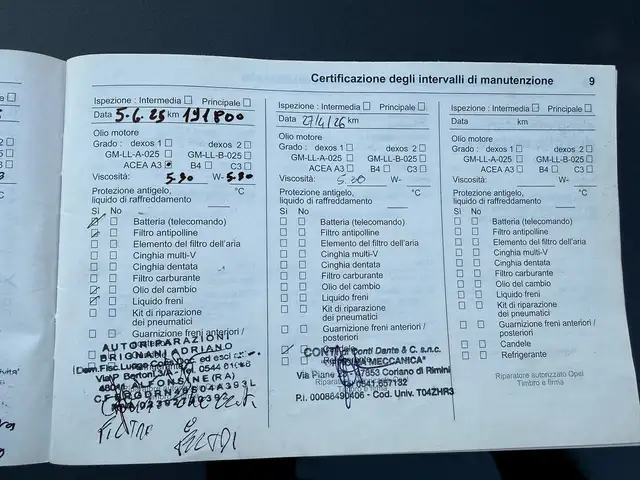 Certificazione degli intervalli di manutenzione 9
Ispezione : Intermedia Principale
Data 5.6.25 km 191800
Olio motore
Grado : dexos 1 dexos 2
GM-LL-A-025 GM-LL-B-025
ACEA A3 B4 C3
Viscosità: 5.30 W- 5.30
Protezione antigelo,
liquido di raffreddamento °C
Sì No
Batteria (telecomando)
Filtro antipolline
Elemento del filtro dell'aria
Cinghia multi-V
Cinghia dentata
Filtro carburante
Olio del cambio
Liquido freni
Kit di riparazione
dei pneumatici
Guarnizione freni anteriori /
AUTORIPARAZIONI
BRIGNANI ADRIANO
48011 ALFONSINE (RA)
FILTRI
Ispezione : Intermedia Principale
Data 27/4/26 km
Olio motore
Grado : dexos 1 dexos 2
GM-LL-A-025 GM-LL-B-025
ACEA A3 B4 C3
Viscosità: 5.30 W-
Protezione antigelo,
liquido di raffreddamento °C
Sì No
Batteria (telecomando)
Filtro antipolline
Elemento del filtro dell'aria
Cinghia multi-V
Cinghia dentata
Filtro carburante
Olio del cambio
Liquido freni
Kit di riparazione
dei pneumatici
Guarnizione freni anteriori /
posteriori
Conti Dante & C. s.n.c.
MECCANICA"
47853 Coriano di Rimini
0541.657132
P.i. 00086490406 - Cod. Univ. T04ZHR3
Ispezione : Intermedia Principale
Data km
Olio motore
Grado : dexos 1 dexos 2
GM-LL-A-025 GM-LL-B-025
ACEA A3 B4 C3
Viscosità: W-
Protezione antigelo,
liquido di raffreddamento °C
Sì No
Batteria (telecomando)
Filtro antipolline
Elemento del filtro dell'aria
Cinghia multi-V
Cinghia dentata
Filtro carburante
Olio del cambio
Liquido freni
Kit di riparazione
dei pneumatici
Guarnizione freni anteriori /
posteriori
Candele
Refrigerante
Riparatore autorizzato Opel
Timbro e firma